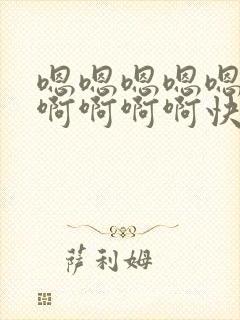 嗯嗯嗯嗯嗯
啊啊啊啊快
萨利姆